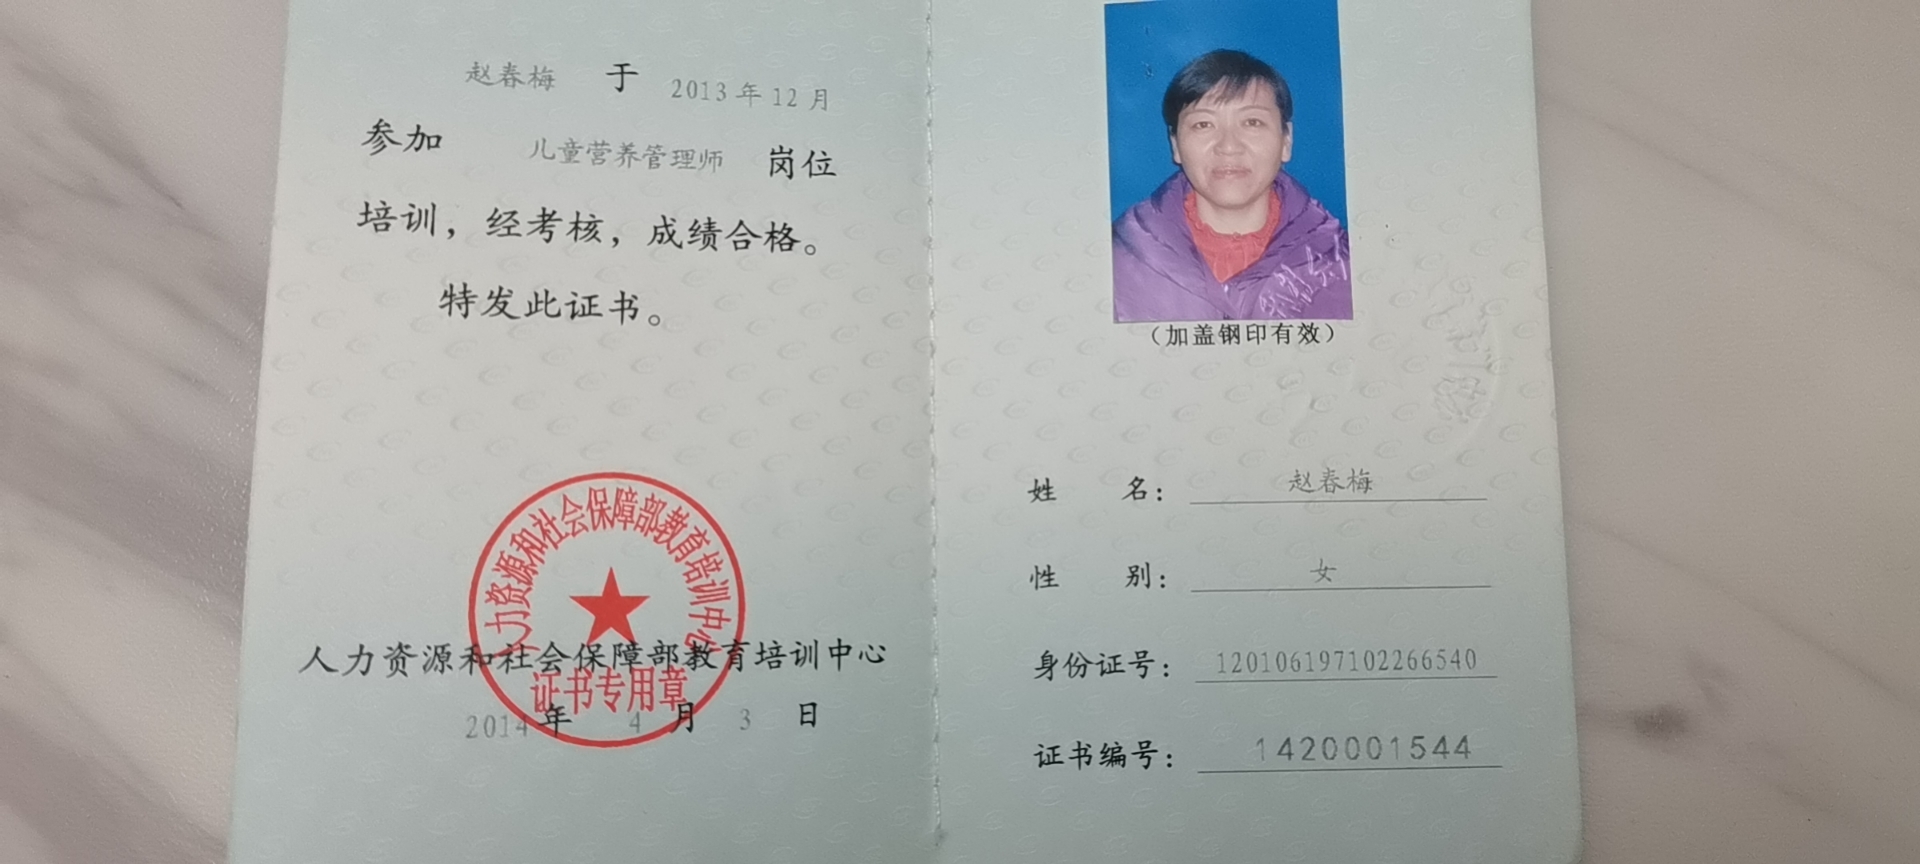 赵春梅 于 2013 年 12 月
参加 儿童营养管理师 岗位
培训，经考核，成绩合格。
特发此证书。
人力资源和社会保障部教育培训中心
证书专用章
人力资源和社会保障部教育培训中心
2014 年 4 月 3 日
（加盖钢印有效）
姓 名： 赵春梅
性 别： 女
身份证号： 120106197102266540
证书编号： 1420001544